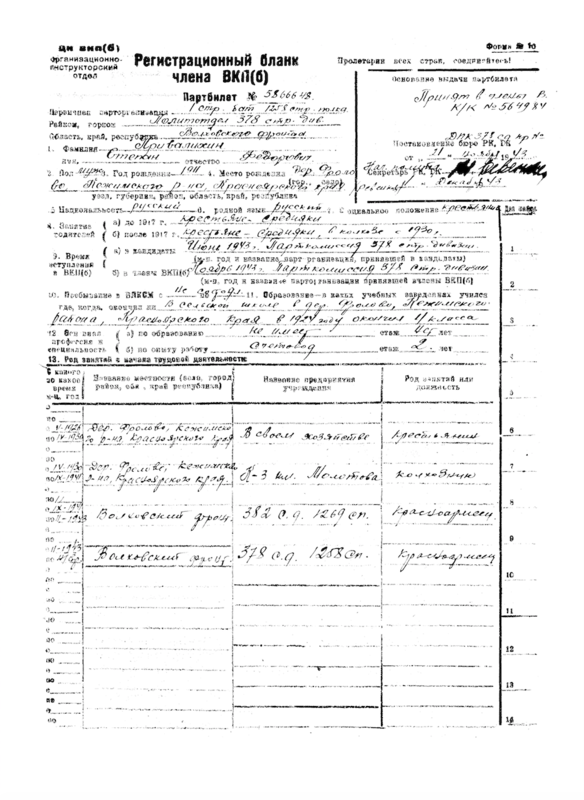 ЦК ВКП(б)
Организационно-
инструкторский
отдел
Форма № 10
Регистрационный бланк
члена ВКП(б)
Пролетарии всех стран, соединяйтесь!
Партбилет №
Основание выдачи партбилета
Принят в члены
К/К № 564984
Первичная парторганизация 1 стр. бат 1258 стр. полка
Райком, горком Политотдел 378 стр. див.
Область, край, республика Волховского фронта
Постановление бюро РК, ГК
1. Фамилия
имя Степан отчество Федорович
Секретарь
2. Пол муж 3. Год рождения 1911 4. Место рождения дер. Фроло-
во, Кежемского р-на, Красноярского края
уезд, губерния, район, область, край, республика
5. Национальность русский 6. родной язык русский 7. Социальное положение
8. Занятие
родителей
а) до 1917 г. крестьяне-середняки
б) после 1917 г. крестьяне-середняки, в колхозе с 1930г.
9. Время
вступления
в ВКП(б)
а) в кандидаты Июне 1943г. Парткомиссия 378 стр. дивизии
(м-ц, год и название парт организации, принявшей в кандидаты)
б) в члены ВКП(б) Ноябрь 1943г. Парткомиссия 378 стр. дивизии
(м-ц, год и название парторганизации принявшей в члены ВКП(б)
10. Пребывание в ВЛКСМ с не состоял 11. Образование-в каких учебных заведениях учился
где, когда, окончил ли В сельской школе в дер. Фролово, Кежемского
района, Красноярского края в 1924 году окончил 4 класса
12 Осн зная
профессия и
специальность
а) по образованию не имеет стаж нет лет
б) по опыту работу Счетовод стаж 2 лет
13. Род занятий с начала трудовой деятельности:
С какого
по какое
время
м-ц, год
Название местности (село, город
район, обл , край республика)
Название предприятия
учреждения
Род занятий или
должность
Дер. Фролово, Кежемско-
го р-на Красноярского края
В своем хозяйстве
Крестьянин
Дер. Фролово, Кежемского
р-на, Красноярского края.
К-з им. Молотова
колхозник
Волховский фронт.
382 с.д. 1269 сп.
Красноармеец
Волховский фронт.
378 с.д. 1258 сп.
Красноармеец
1
2
3
4
5
6
7
8
9
10
11
12
13
14